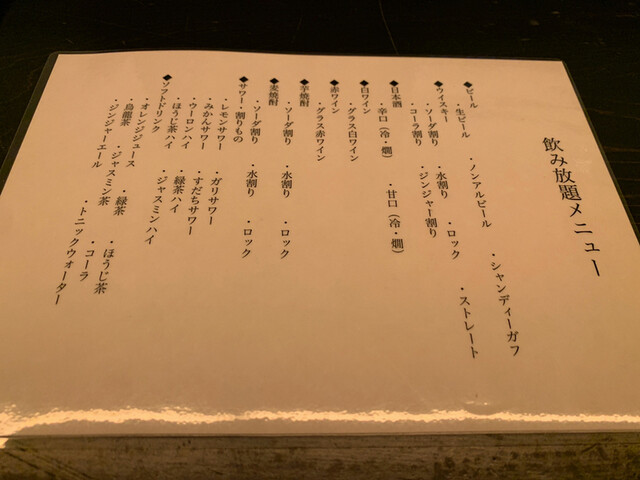 飲み放題メニュー
◆ビール
・生ビール ・ノンアルビール ・シャンディーガフ
◆ウイスキー
・ソーダ割り ・水割り ・ロック ・ストレート
・コーラ割り ・ジンジャー割り
◆日本酒
・辛口（冷・燗） ・甘口（冷・燗）
◆白ワイン
・グラス白ワイン
◆赤ワイン
・グラス赤ワイン
◆芋焼酎
・ソーダ割り ・水割り ・ロック
◆麦焼酎
・ソーダ割り ・水割り ・ロック
◆サワー・割りもの
・レモンサワー ・ガリサワー
・みかんサワー ・すだちサワー
・ウーロンハイ ・緑茶ハイ
・ほうじ茶ハイ ・ジャスミンハイ
◆ソフトドリンク
・オレンジジュース ・緑茶 ・ほうじ茶
・烏龍茶 ・ジャスミン茶 ・コーラ
・ジンジャーエール ・トニックウォーター